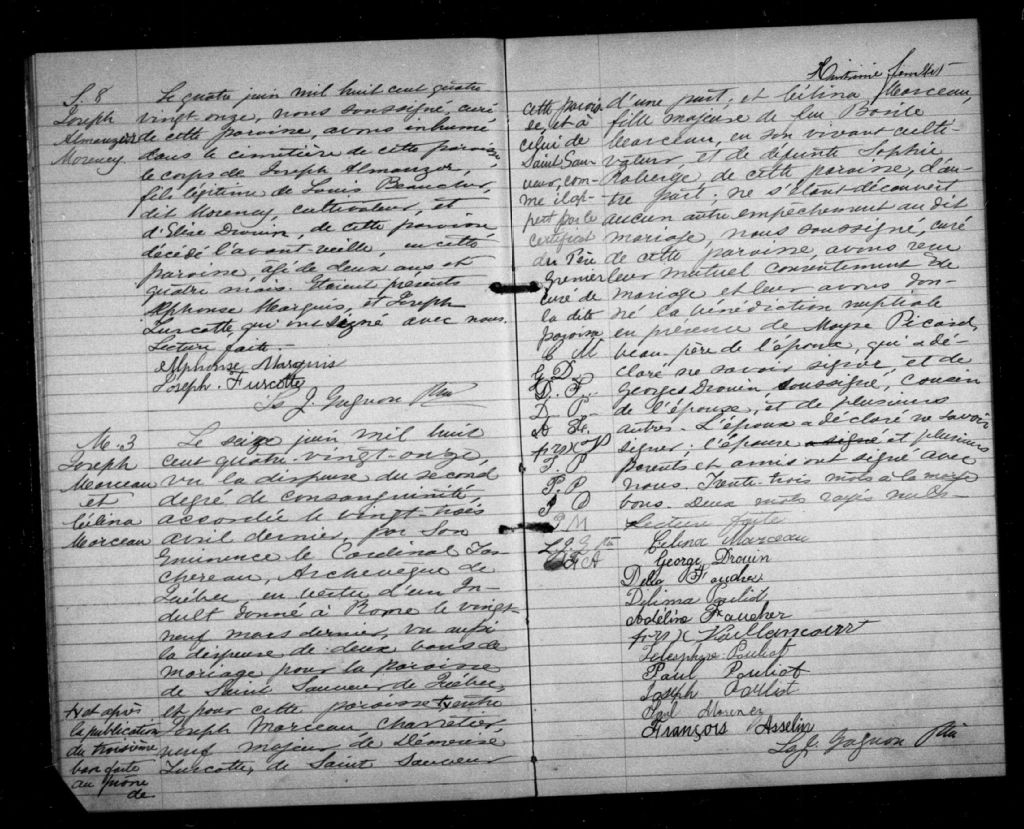 S. 8
Joseph
Almanzor
Morency
Le quatre juin mil huit cent quatre
vingt onze, nous soussigné, curé
de cette paroisse, avons inhumé
dans le cimetière de cette paroisse,
le corps de Joseph Almanzor,
fils légitime de Louis Beaucher,
dit Morency, cultivateur, et
d'Elise Drouin, de cette paroisse
décédé l'avant-veille, en cette
paroisse, âgé de deux ans et
quatre mois. Etaient présents
Alphonse Marquis, et Joseph
Turcotte, qui ont signé avec nous.
Lecture faite
Alphonse Marquis
Joseph Turcotte
J. Gagnon Ptre
M. 3
Joseph
Marceau
et
Célina
Marceau
Le seize juin mil huit
cent quatre-vingt-onze,
vu la dispense du second
degré de consanguinité,
accordée le vingt-trois
avril dernier, par Son
Eminence le Cardinal Tas
chereau, Archevêque de
Québec, en vertu d'un In-
dult donné à Rome le vingt
neuf mars dernier, vu aussi
la dispense de deux bans de
mariage pour la paroisse
de Saint Sauveur de Québec,
et pour cette paroisse entre
Joseph Marceau, charretier,
veuf majeur de Démerise
Turcotte, de Saint Sauveur
et après
la publication
du troisième
ban faite
au prône
de
feuillet
cette parois
se, et à
celui de
Saint Sau-
veur, com-
me il ap-
pert par le
certificat
du Père
Grenier
curé de
la dite
paroisse
C M
G. D.
D. F.
D. P.
A F.
F. P
P. P
J P
P M
F A
d'une part, et Célina Marceau,
fille majeure de feu Basile
Marceau, en son vivant culti-
vateur, et de défunte Sophie
Roberge, de cette paroisse, d'au-
tre part; ne s'étant découvert
aucun autre empêchement au dit
mariage, nous soussigné, curé
de cette paroisse, avons reçu
leur mutuel consentement de
mariage et leur avons don-
né la bénédiction nuptiale
en présence de Moyse Picard,
beau-père de l'époux, qui a dé-
claré ne savoir signer, et de
Georges Drouin, soussigné, cousin
de l'épouse, et de plusieurs
autres. L'époux a déclaré ne savoir
signer; l'épouse a signé et plusieurs
parents et amis ont signé avec
nous. Trente-trois mots à la marge
bons. Deux mots rayés nuls
Lecture faite
Celina Marceau
George Drouin
Délia Faucher
Délima Pouliot
Adélina Faucher
Vaillancourt
Télesphore Pouliot
Paul Pouliot
Joseph Pouliot
Paul Morency
François Asselin
Gagnon Ptre